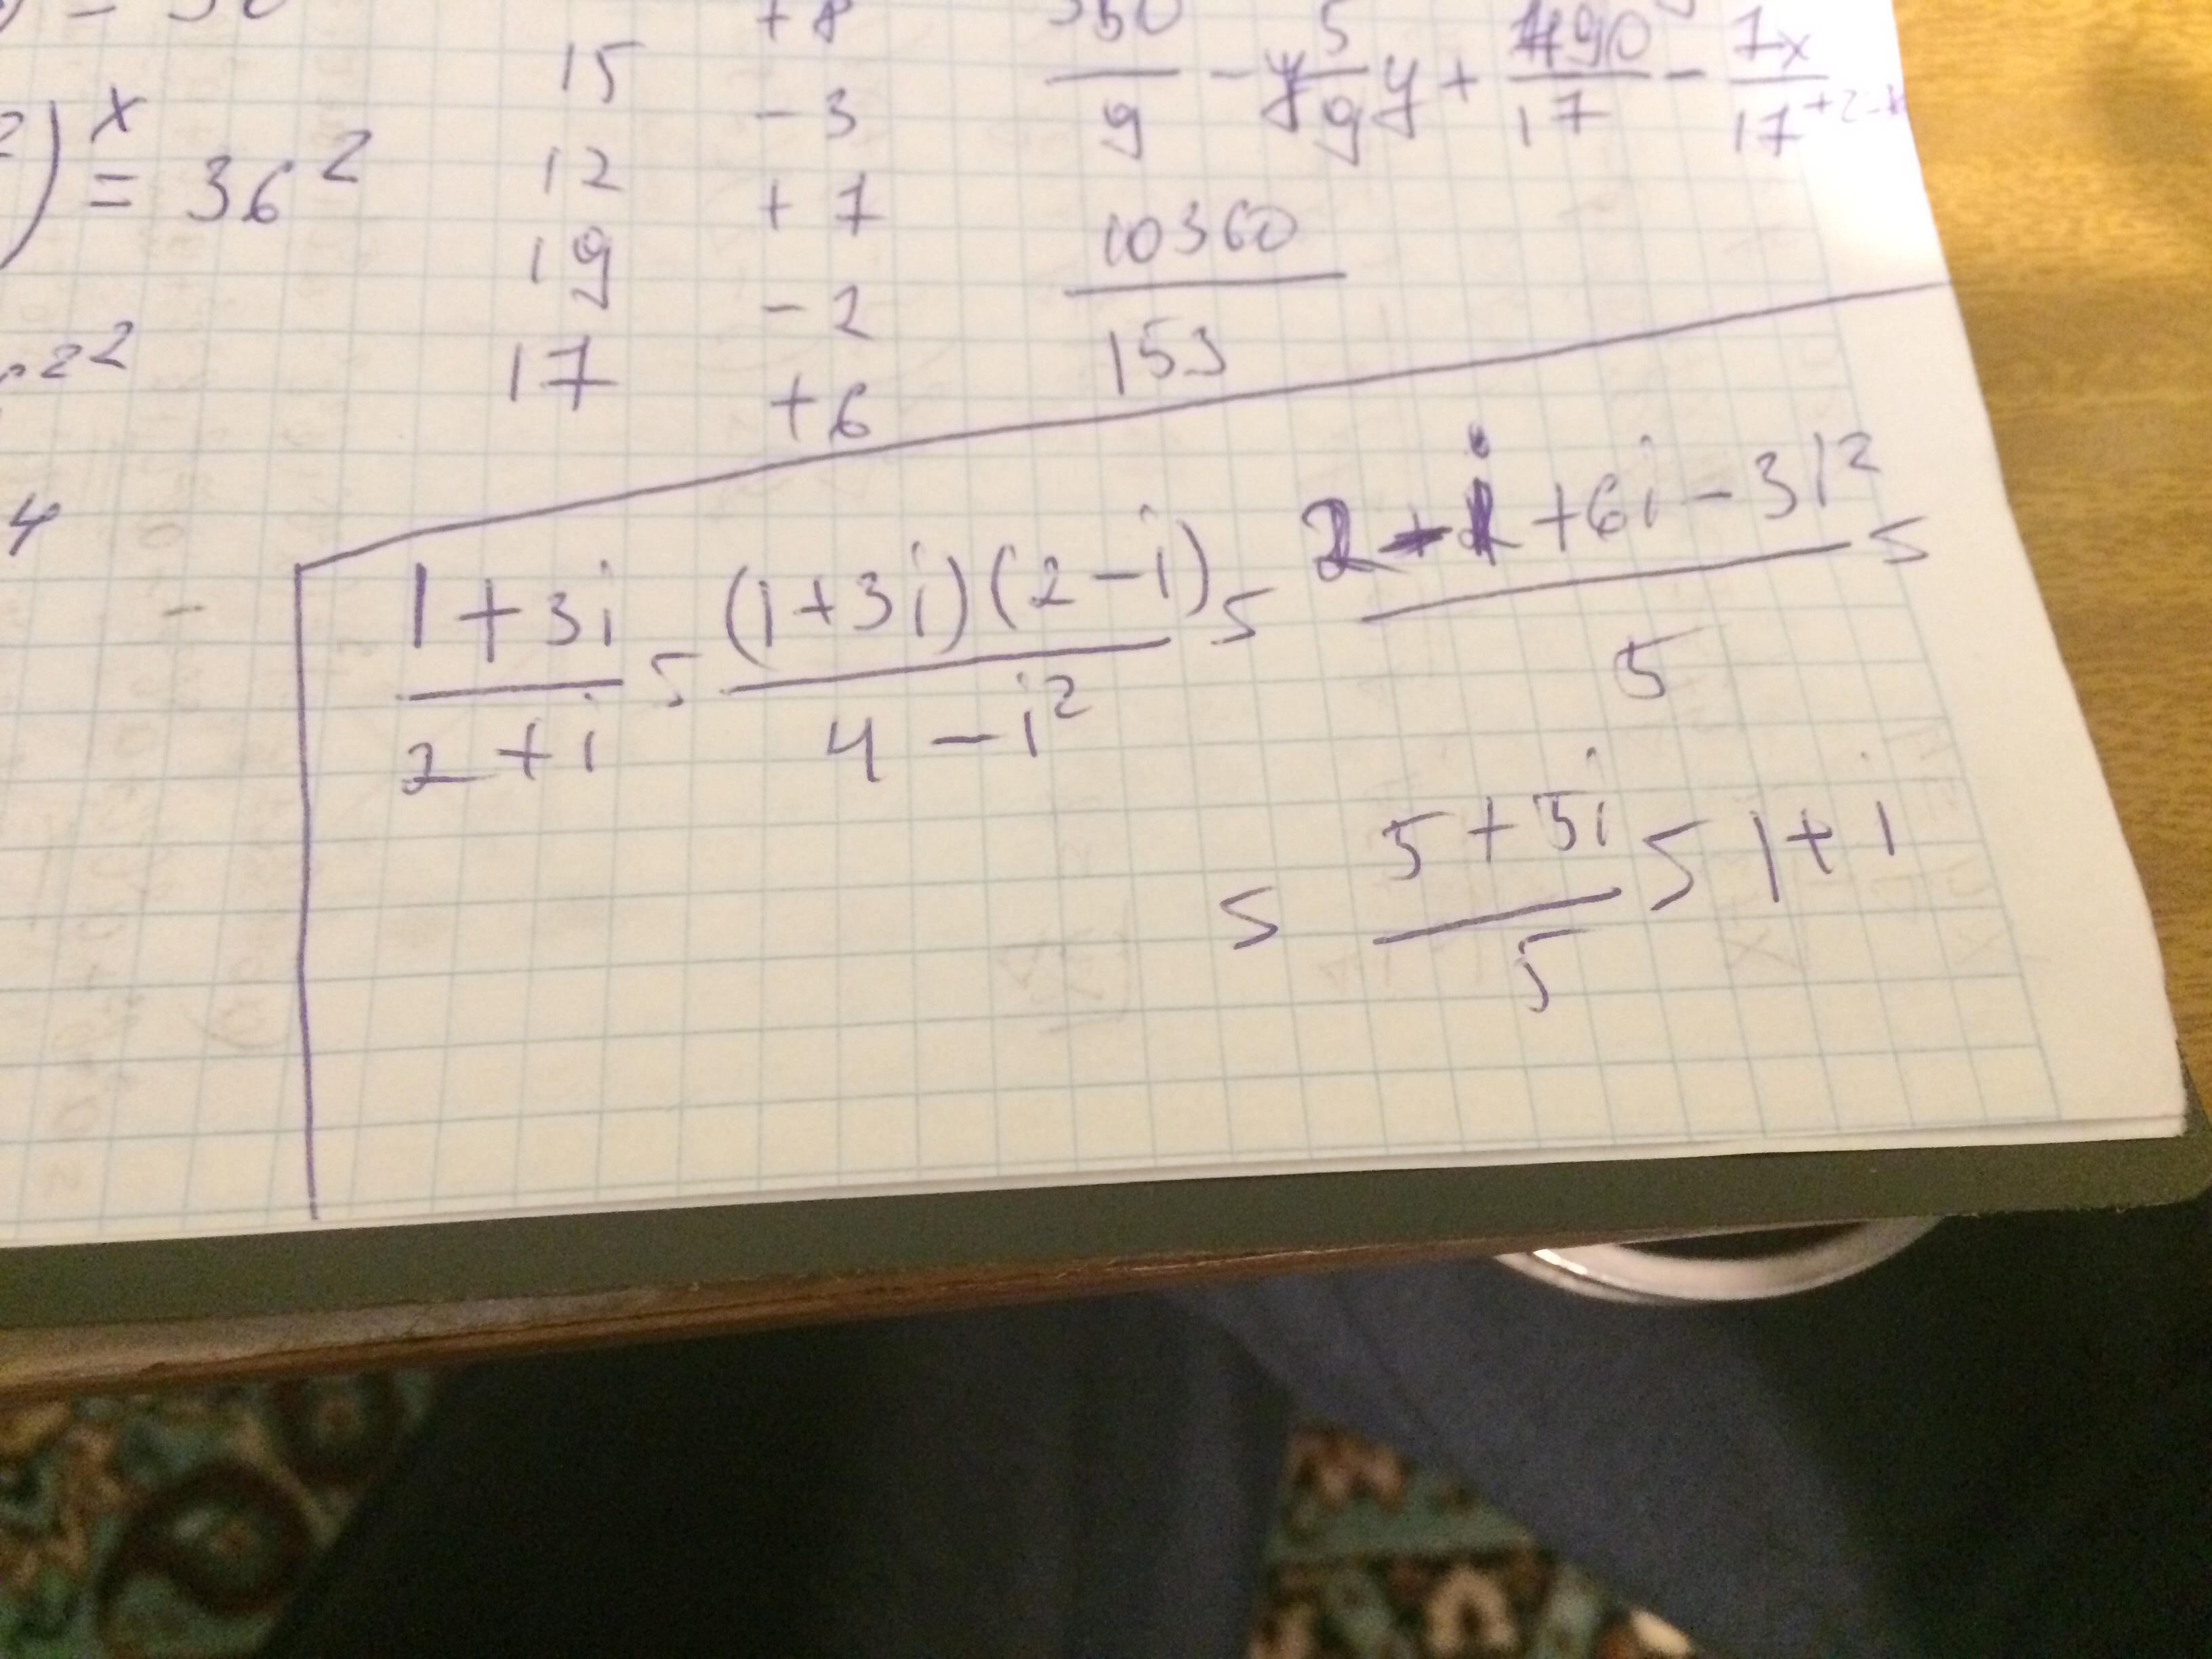 ) x = 36²
2²
4
15
12
19
17
+8
-3
+7
-2
+6
350/9 - 5/9 y + 490/17 - 7x/17
10360/153
(1+3i)/(2+i) = ((1+3i)(2-i))/(4-i²) = (2-i+6i-3i²)/5 =
= (5+5i)/5 = 1+i